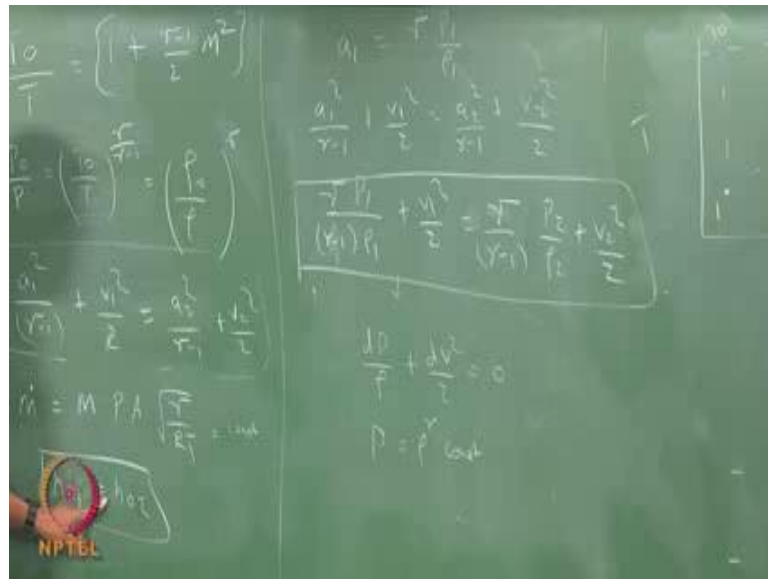 T0/T = {1 + (γ-1)/2 M²}
P0/P = (T0/T)^(γ/(γ-1)) = (ρ0/ρ)^γ
a1²/(γ-1) + v1²/2 = a2²/(γ-1) + v2²/2
ṁ = M P A √(γ/RT) = const
h01 = h02
a1 = γ P1/ρ1
a1²/(γ-1) + v1²/2 = a2²/(γ-1) + v2²/2
γ P1/((γ-1) ρ1) + v1²/2 = γ/(γ-1) P2/ρ2 + v2²/2
dP/ρ + dv²/2 = 0
P = ρ^γ const
1
1
1
NPTEL